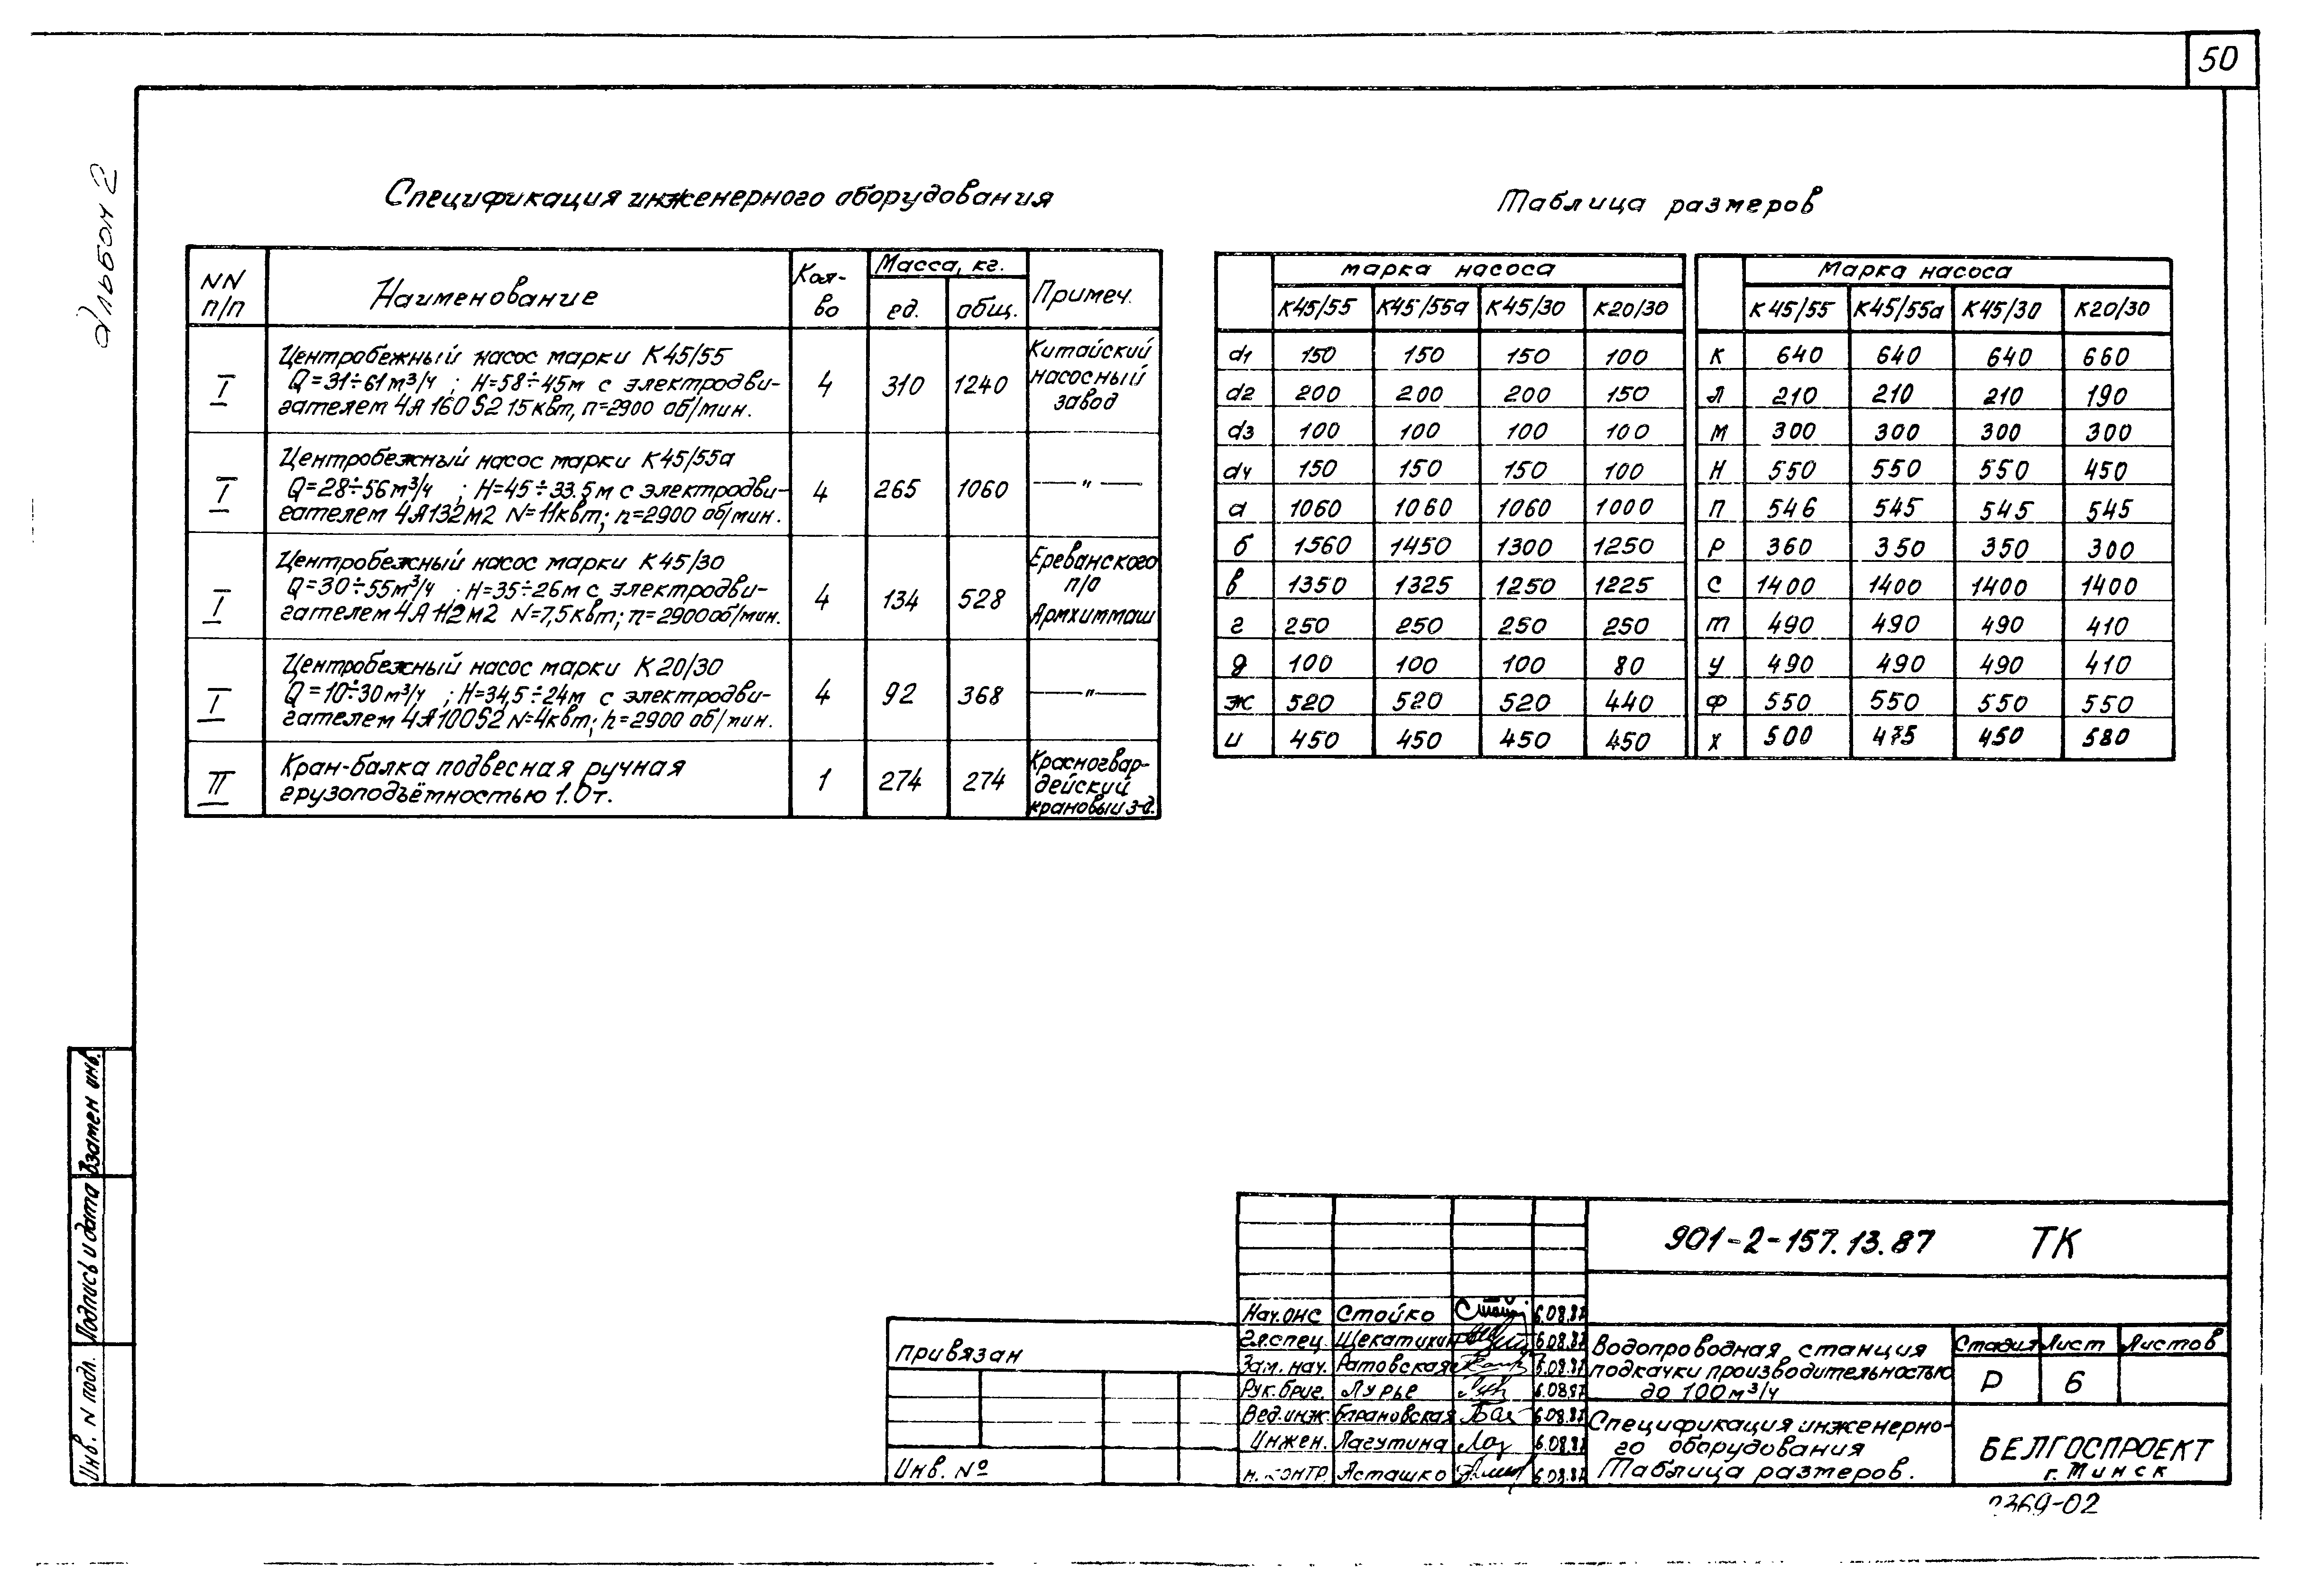 50
Альбом 2
Спецификация инженерного оборудования
NN п/п Наименование Кол-во Масса, кг. Примеч.
ед. общ.
I Центробежный насос марки К45/55 Китайский
Q=31÷61м³/ч ; Н=58÷45м с электродви- 4 310 1240 насосный
гателем 4А160S2 15квт, п=2900 об/мин. завод
I Центробежный насос марки К45/55а
Q=28÷56м³/ч ; Н=45÷33.5м с электродви- 4 265 1060 —"—
гателем 4А132М2 N=11квт; п=2900 об/мин.
I Центробежный насос марки К45/30 Ереванского
Q=30÷55м³/ч . Н=35÷26м с электродви- 4 134 528 п/о
гателем 4А112М2 N=7,5квт; п=2900об/мин. Армхиммаш
I Центробежный насос марки К20/30
Q=10÷30м³/ч ; Н=34,5÷24м с электродви- 4 92 368 —"—
гателем 4А100S2 N=4квт; п=2900 об/мин.
II Кран-балка подвесная ручная 1 274 274 Красногвар-
грузоподъёмностью 1.0т. дейский
крановый з-д.
Таблица размеров
марка насоса
К45/55 К45/55а К45/30 К20/30
d1 150 150 150 100
d2 200 200 200 150
d3 100 100 100 100
d4 150 150 150 100
а 1060 1060 1060 1000
б 1560 1450 1300 1250
в 1350 1325 1250 1225
г 250 250 250 250
д 100 100 100 80
ж 520 520 520 440
и 450 450 450 450
Марка насоса
К45/55 К45/55а К45/30 К20/30
К 640 640 640 660
Л 210 210 210 190
М 300 300 300 300
Н 550 550 550 450
П 546 545 545 545
Р 360 350 350 300
С 1400 1400 1400 1400
Т 490 490 490 410
У 490 490 490 410
Ф 550 550 550 550
Х 500 475 450 580
Взамен инв.
Подпись и дата
Инв. N подл.
привязан
Инв. №
901-2-157.13.87 ТК
Нач.ОНС Стойко 6.08.87
Гл.спец. Щекатихин 6.08.87
Зам. нач. Ратовская 6.08.87
Рук.бриг. Лурье 6.08.87
Вед.инж. Барановская 6.08.87
Инжен. Лагутина 6.08.87
Н. контр. Асташко 6.08.87
Водопроводная станция
подкачки производительностью
до 100м³/ч
Стадия Лист Листов
Р 6
Спецификация инженерно-
го оборудования
Таблица размеров.
БЕЛГОСПРОЕКТ
г. Минск
369-02